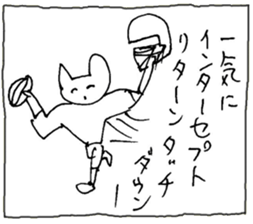 一気に
インターセプト
リターンタッチ
ダウンー